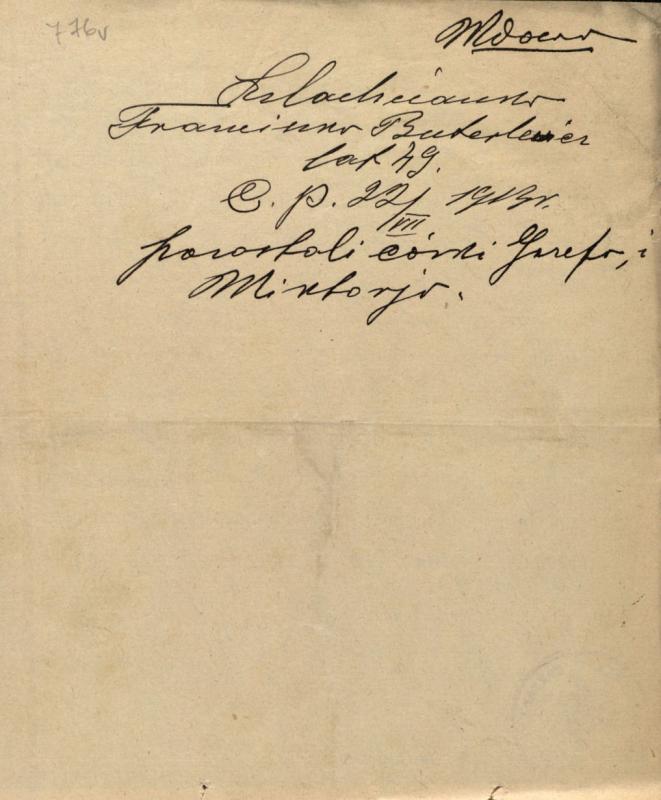 776v
Wdowa
Szlachcianka
Franciszka Buterlewicz
lat 79.
C. p. 22/VIII 1913r.
pozostali córki Józefa, i
Wiktorja.